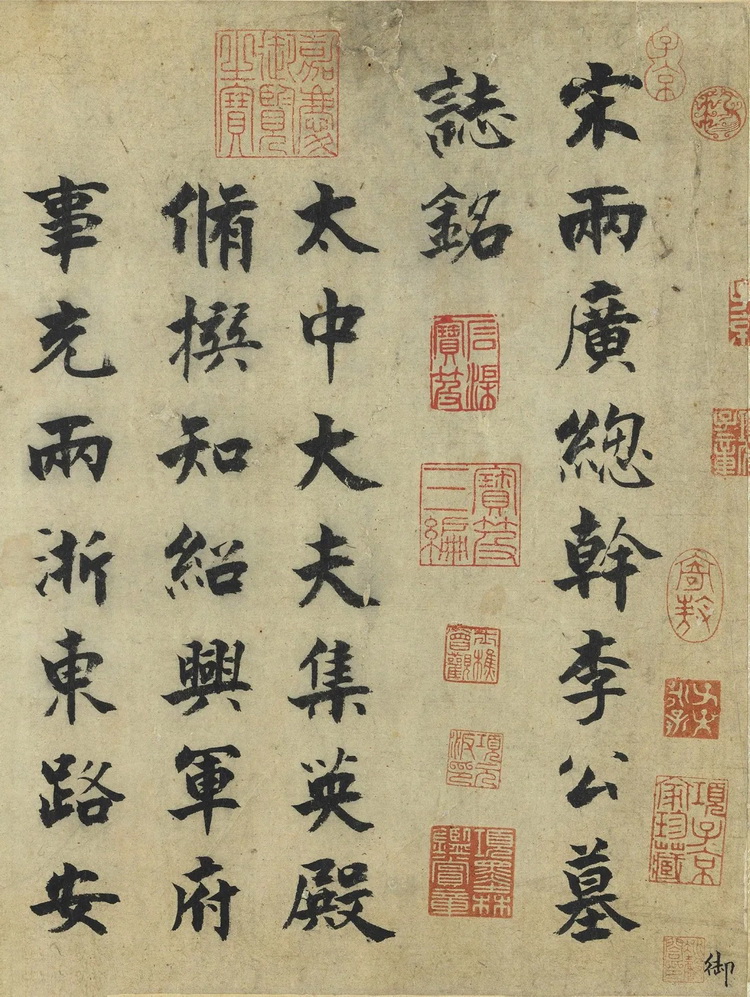 宋兩廣總幹李公墓
誌銘
太中大夫集英殿
脩撰知紹興軍府
事充兩浙東路安
御
子京
嘉慶御覽之寶
寶笈三編
項子京家珍藏
項墨林鑑賞章